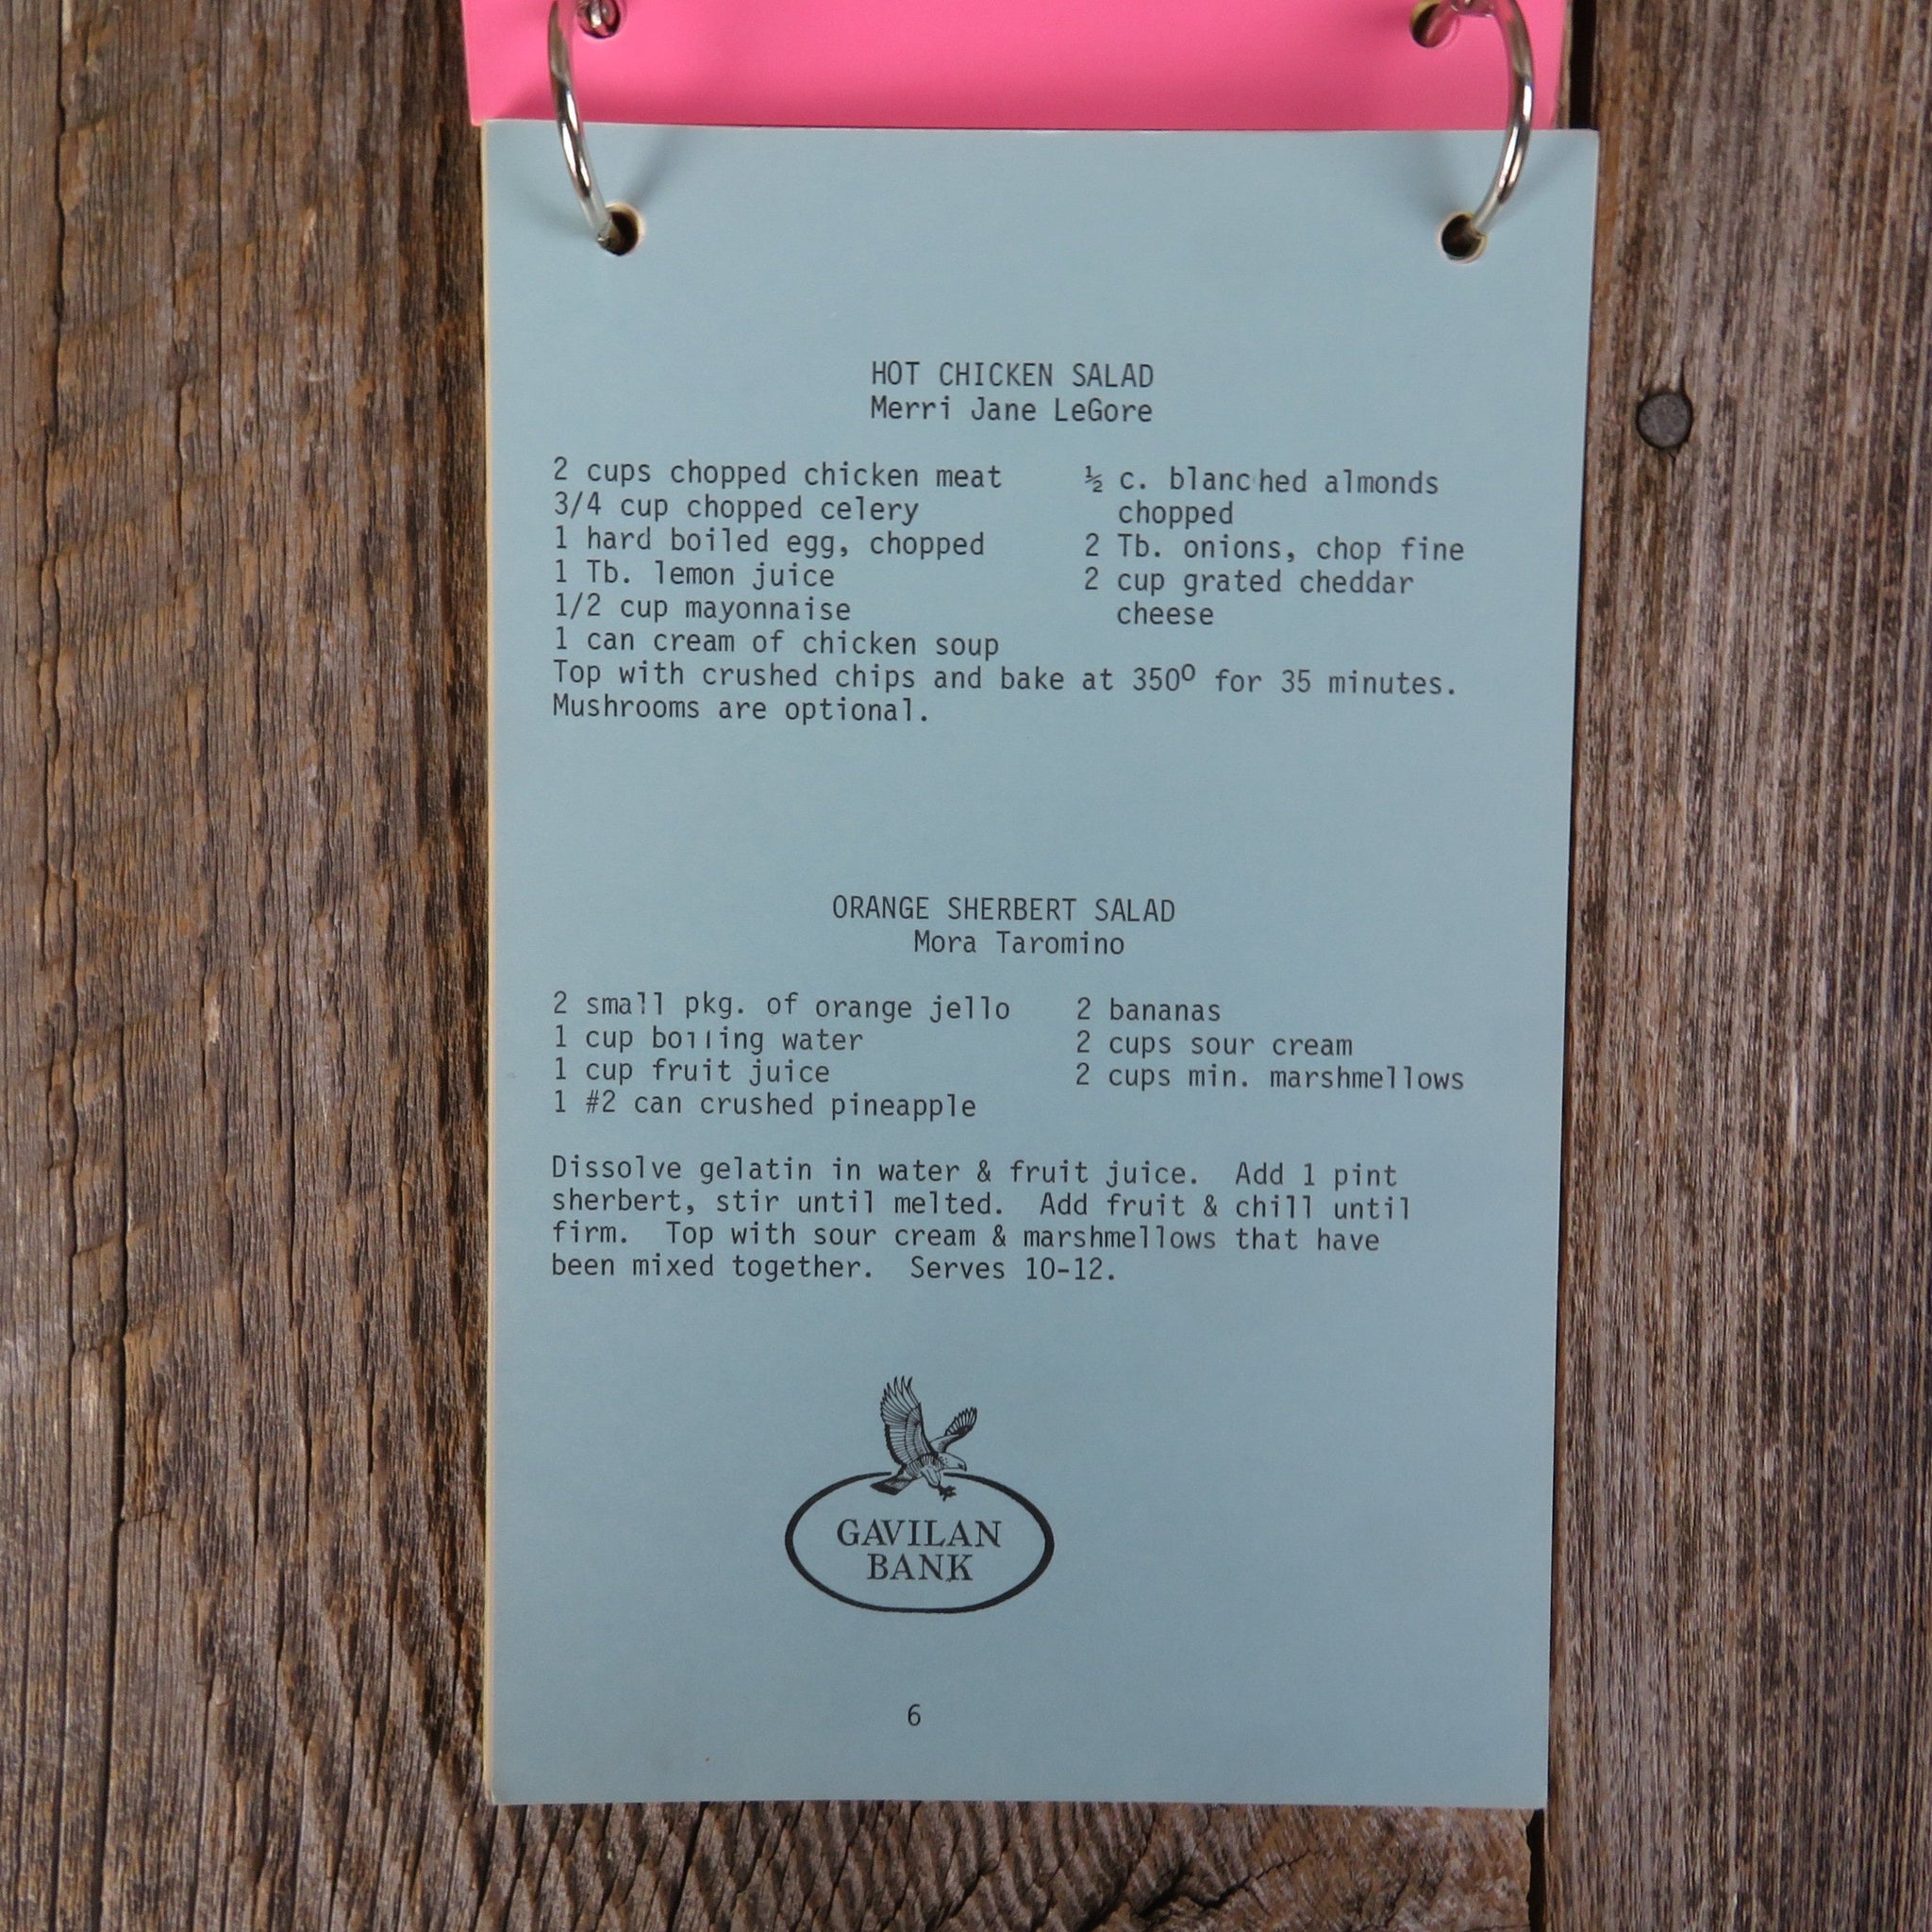 HOT CHICKEN SALAD
Merri Jane LeGore
2 cups chopped chicken meat
3/4 cup chopped celery
1 hard boiled egg, chopped
1 Tb. lemon juice
1/2 cup mayonnaise
1 can cream of chicken soup
½ c. blanched almonds
chopped
2 Tb. onions, chop fine
2 cup grated cheddar
cheese
Top with crushed chips and bake at 350º for 35 minutes.
Mushrooms are optional.
ORANGE SHERBERT SALAD
Mora Taromino
2 small pkg. of orange jello
1 cup boiling water
1 cup fruit juice
1 #2 can crushed pineapple
2 bananas
2 cups sour cream
2 cups min. marshmellows
Dissolve gelatin in water & fruit juice. Add 1 pint
sherbert, stir until melted. Add fruit & chill until
firm. Top with sour cream & marshmellows that have
been mixed together. Serves 10-12.
GAVILAN
BANK
6